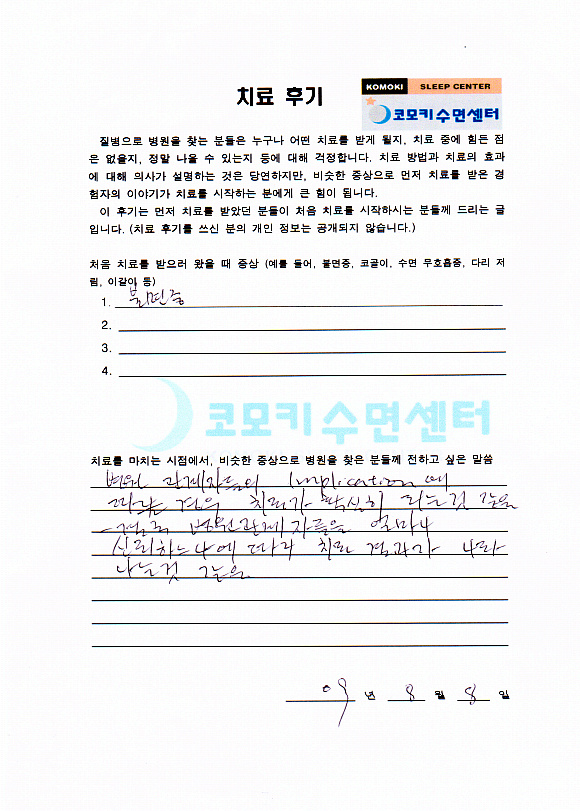 치료 후기
KOMOKI SLEEP CENTER
코모키수면센터
질병으로 병원을 찾는 분들은 누구나 어떤 치료를 받게 될지, 치료 중에 힘든 점
은 없을지, 정말 나을 수 있는지 등에 대해 걱정합니다. 치료 방법과 치료의 효과
에 대해 의사가 설명하는 것은 당연하지만, 비슷한 증상으로 먼저 치료를 받은 경
험자의 이야기가 치료를 시작하는 분에게 큰 힘이 됩니다.
이 후기는 먼저 치료를 받았던 분들이 처음 치료를 시작하시는 분들께 드리는 글
입니다. (치료 후기를 쓰신 분의 개인 정보는 공개되지 않습니다.)
처음 치료를 받으러 왔을 때 증상 (예를 들어, 불면증, 코골이, 수면 무호흡증, 다리 저
림, 이갈이 등)
1. 불면증
2.
3.
4.
코모키수면센터
치료를 마치는 시점에서, 비슷한 증상으로 병원을 찾은 분들께 전하고 싶은 말씀
병원 관계자들의 implication에
따를 경우 치료가 확실히 되는것 같음
결국 병원관계자들을 얼마나
신뢰하느냐에 따라 치료 결과가 나타
나는것 같음
09 년 8 월 8 일